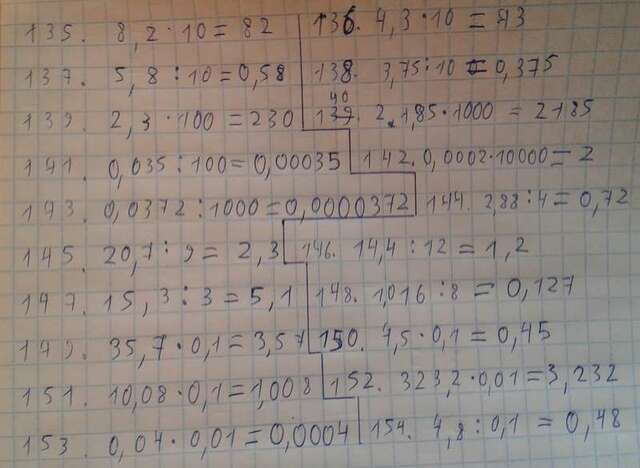 135. 8,2·10=82 136. 4,3·10=43
137. 5,8:10=0,58 138. 3,75:10=0,375
139. 2,3·100=230 140. 2,185·1000=2185
141. 0,035:100=0,00035 142. 0,0002·10000=2
143. 0,0372:1000=0,0000372 144. 2,88:4=0,72
145. 20,7:9=2,3 146. 14,4:12=1,2
147. 15,3:3=5,1 148. 1,016:8=0,127
149. 35,7·0,1=3,57 150. 4,5·0,1=0,45
151. 10,08·0,1=1,008 152. 323,2·0,01=3,232
153. 0,04·0,01=0,0004 154. 4,8:0,1=0,48